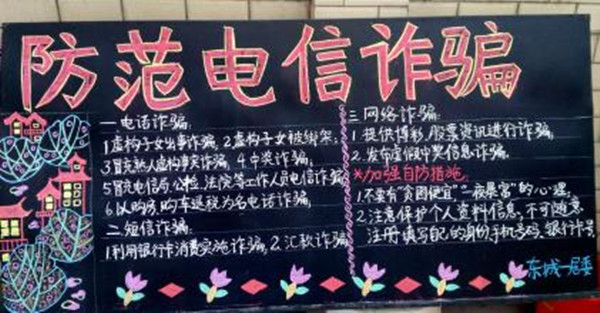 防范电信诈骗
一 电话诈骗:
1虚构子女出事诈骗, 2虚构子女被绑架;
3冒充熟人虚构事实诈骗, 4.中奖诈骗;
5冒充电信局,公检,法院等工作人员电信诈骗
6.以购房购车退税为名电话诈骗,
二.短信诈骗:
1利用银行卡消费实施诈骗, 2.汇款诈骗
三 网络诈骗:
1.提供博彩,股票资讯进行诈骗,
2.发布虚假中奖信息诈骗.
*加强自防措施.
1.不要有“贪图便宜”“一夜暴富”的心理,
2.注意保护个人资料信息,不可随意
注册填写自己的身份,手机号码,银行卡号.
东城一居委